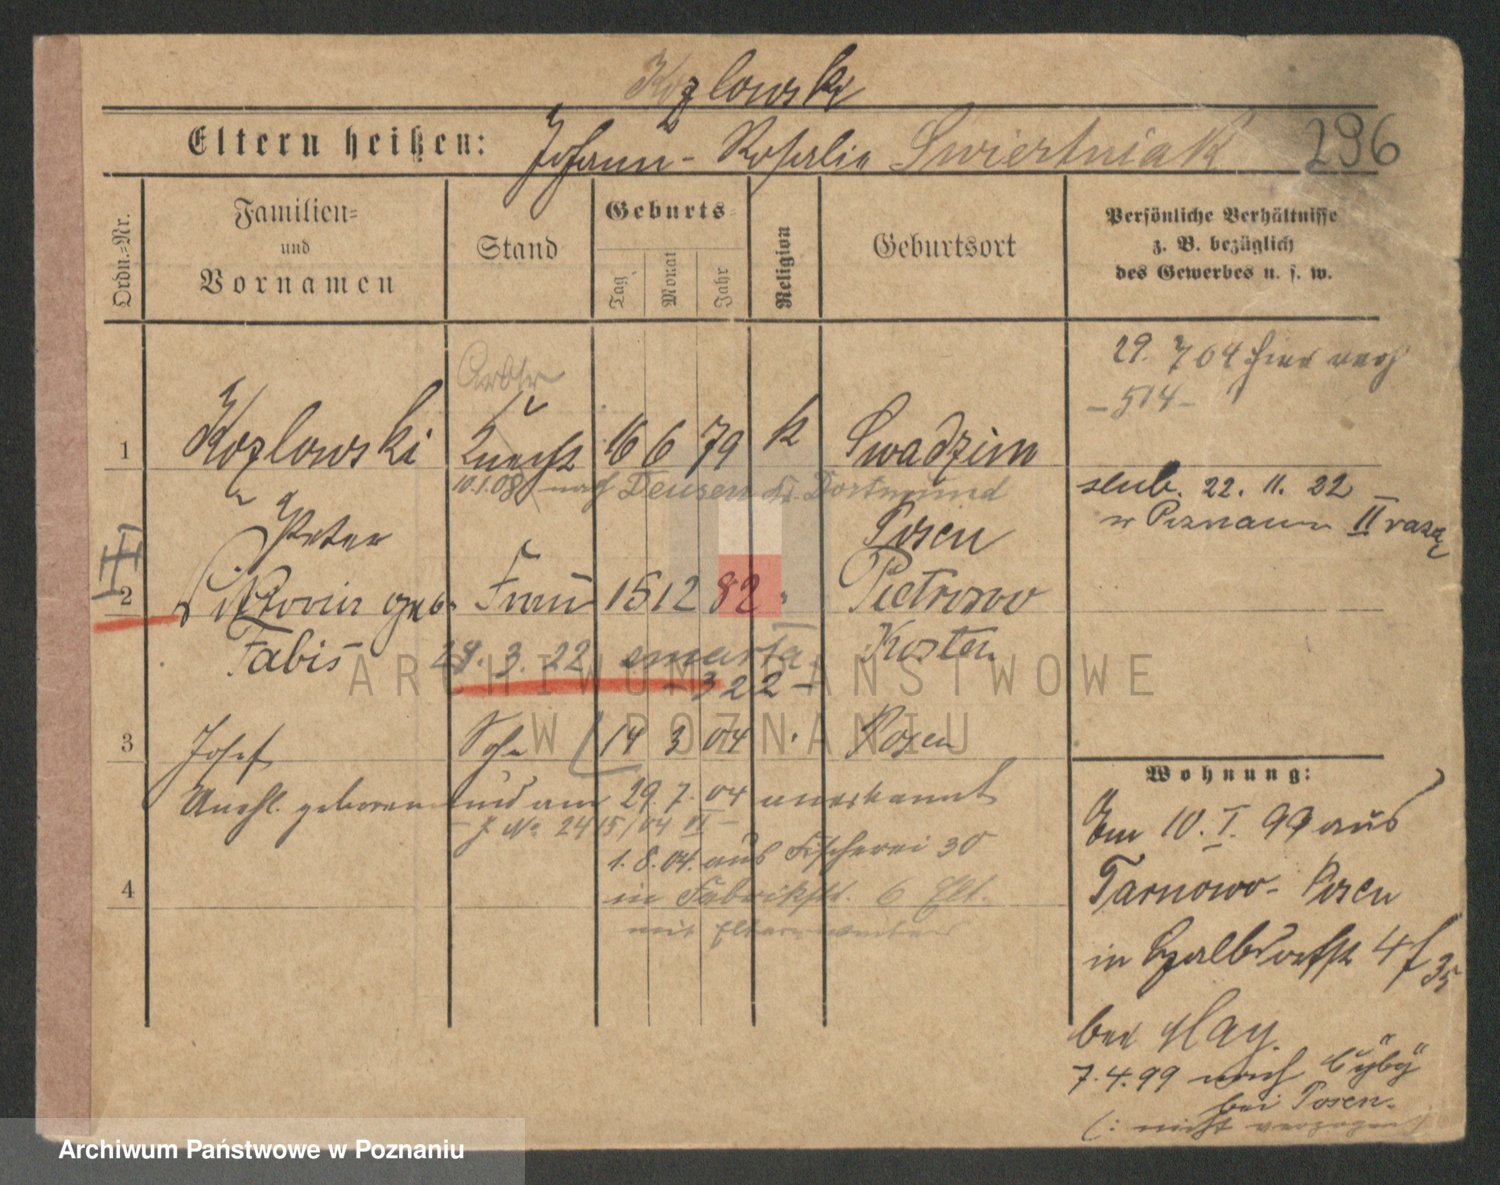 Kozlowski
Eltern heißen: Johann - Rosalie Swiertniak 296
Ordn.=Nr.
Familien= und Vornamen
Stand
Geburts=
Tag
Monat
Jahr
Religion
Geburtsort
Persönliche Verhältnisse
z. B. bezüglich
des Gewerbes u. s. w.
29. 7 04 hier
- 514 -
Arbtr
1 Kozlowski Knecht 16 6 79 k Swadzim
10.1.08 nach Deusen Kr. Dortmund
Peter Posen
ślub. 22. 11. 22
w Poznaniu II raz
2 Viktoria geb. Frau 15 12 82 " Pietrowo
Fabiś 29. 3. 22 zmarła Kosten
- 322 -
3 Josef Sohn 14 3 04 " Posen
Unehl. geboren und am 29. 7. 04 anerkannt
- J. No 2415/04 VI -
1. 8. 04. aus Fischerei 30
4 in Fabrikstr. 6
Wohnung:
Am 10. I. 99 aus
Tarnowo - Posen
in Halbdorfstr 4
35
bei May.
7. 4. 99 nach
bei Posen.
(: nicht verzogen
ARCHIWUM PAŃSTWOWE
W POZNANIU
Archiwum Państwowe w Poznaniu